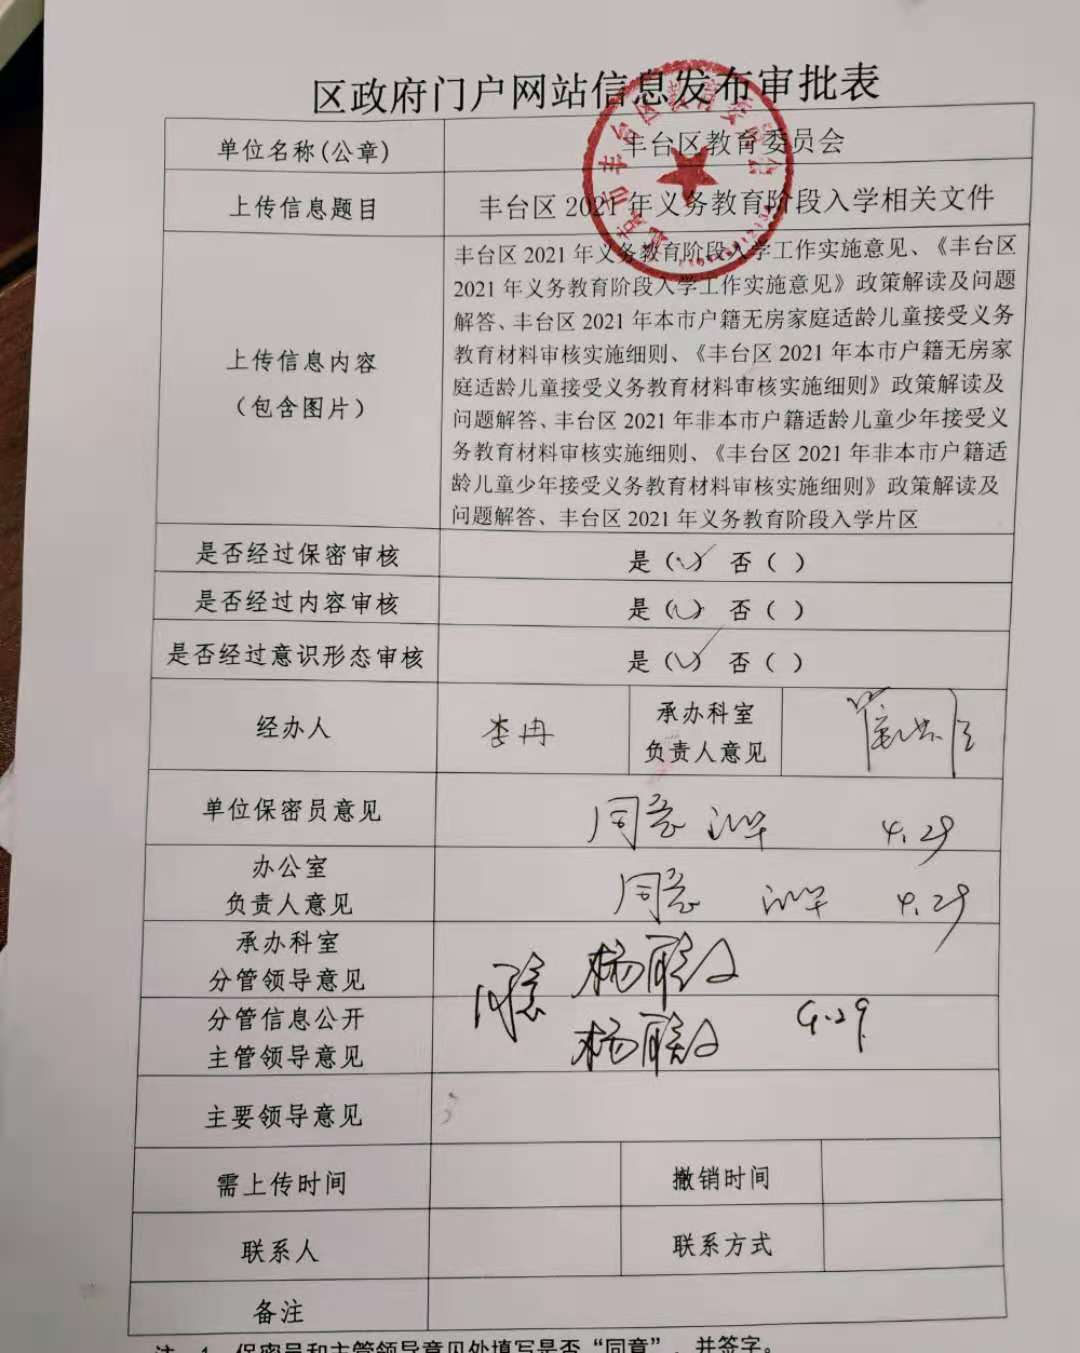 区政府门户网站信息发布审批表
单位名称(公章)
丰台区教育委员会
上传信息题目
丰台区 2021 年义务教育阶段入学相关文件
上传信息内容
（包含图片）
丰台区 2021 年义务教育阶段入学工作实施意见、《丰台区
2021 年义务教育阶段入学工作实施意见》政策解读及问题
解答、丰台区 2021 年本市户籍无房家庭适龄儿童接受义务
教育材料审核实施细则、《丰台区 2021 年本市户籍无房家
庭适龄儿童接受义务教育材料审核实施细则》政策解读及
问题解答、丰台区 2021 年非本市户籍适龄儿童少年接受义
务教育材料审核实施细则、《丰台区 2021 年非本市户籍适
龄儿童少年接受义务教育材料审核实施细则》政策解读及
问题解答、丰台区 2021 年义务教育阶段入学片区
是否经过保密审核
是（√）否（ ）
是否经过内容审核
是（√）否（ ）
是否经过意识形态审核
是（√）否（ ）
经办人
李冉
承办科室
负责人意见
单位保密员意见
同意 4.29
办公室
负责人意见
同意 4.29
承办科室
分管领导意见
同意
分管信息公开
主管领导意见
4.29
主要领导意见
需上传时间
撤销时间
联系人
联系方式
备注
注 1 保密员和主管领导意见处填写是否“同意”，并签字。